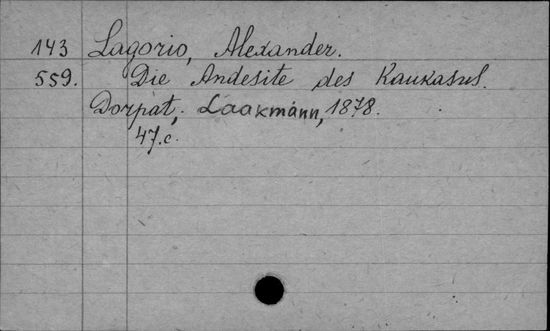 143 Lagorio, Alexander.
559. Die Andesite des Kaukasus.
Dorpat, Laakmann, 1878.
47.c.